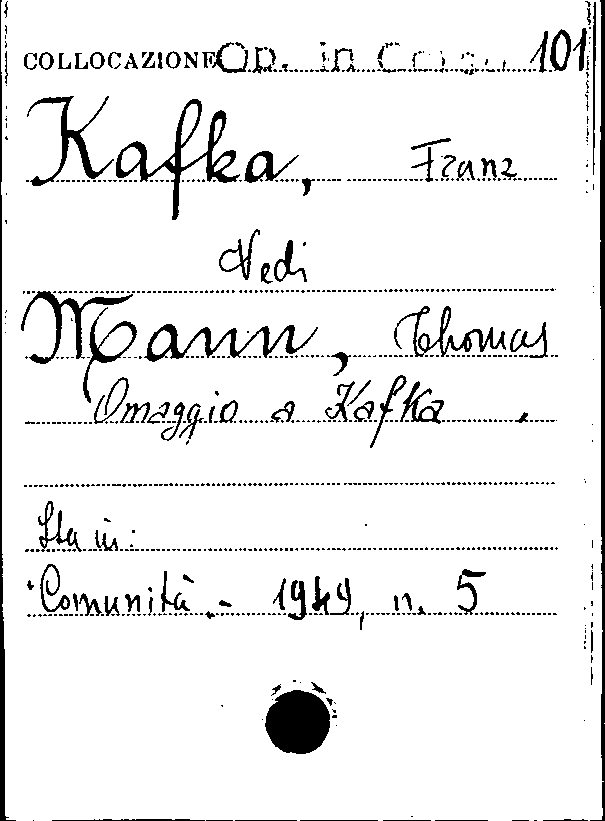 COLLOCAZIONE Op. in 101
Kafka, Franz
Vedi
Mann, Thomas
Omaggio a Kafka.
Sta in:
"Comunità.- 1949, n. 5